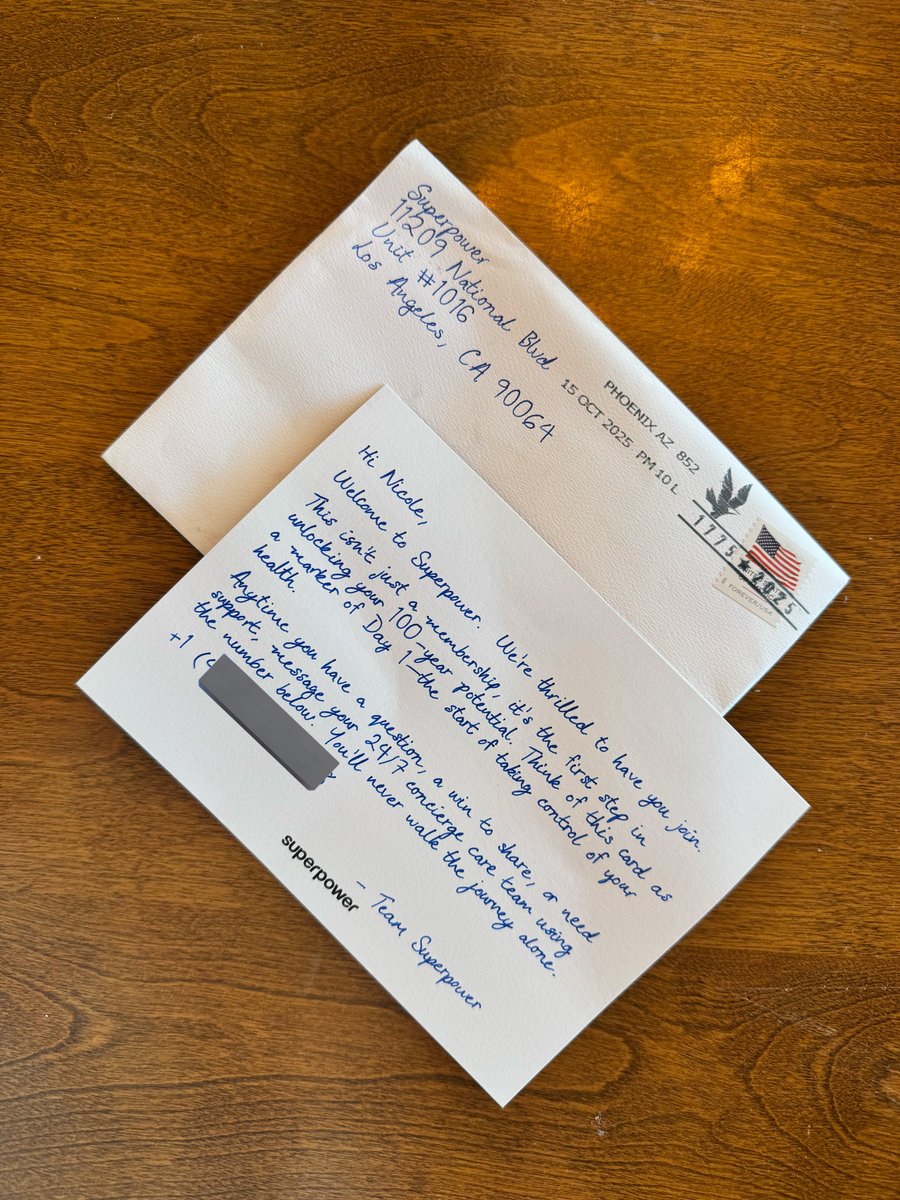 Superpower
11209 National Blvd
Unit #1016
Los Angeles, CA 90064
PHOENIX AZ 852
15 OCT 2025 PM 10 L
1775★2025
FOREVER/USA
Hi Nicole,
Welcome to Superpower. We're thrilled to have you join.
This isn't just a membership, it's the first step in
unlocking your 100-year potential. Think of this card as
a marker of Day 1-the start of taking control of your
health.
Anytime you have a question, a win to share, or need
support, message your 24/7 concierge care team using
the number below. You'll never walk the journey alone.
+1 (
- Team Superpower
superpower